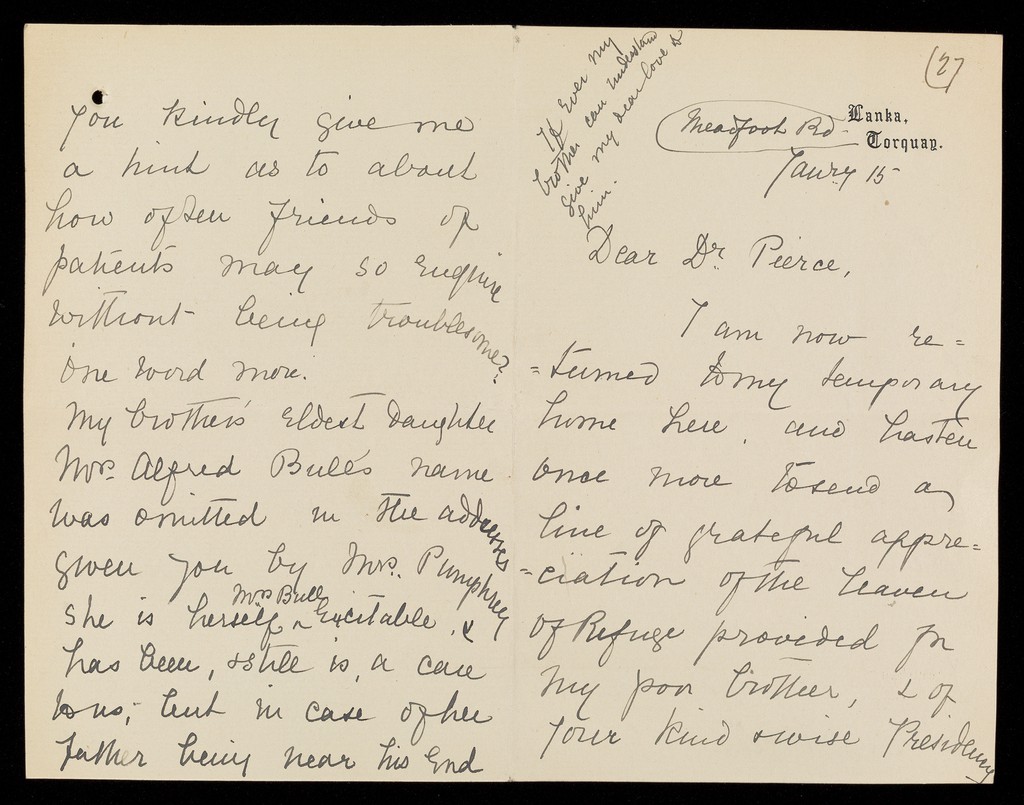 (27
Lanka,
Meadfoot Rd- Torquay.
Janry 15
If Ever my
brother can understand
give my dear love to
him.
Dear Dr. Pierce,
I am now re=
=turned to my temporary
home here, and hasten
once more to send a
line of grateful appre=
=ciation of the heaven
of Refuge provided for
my poor brother, & of
your kind & wise Presidency
you kindly give me
a hint as to about
how often friends of
patients may so enquire
without being troublesome?
One word more.
My brother's Eldest Daughter
Mrs. Alfred Bull's name
was omitted in the addresses
given you by Mrs. Pumphrey
she is herself Mrs Bull Excitable, &
has been, & still is, a care
to us; but in case of her
Father being near his End